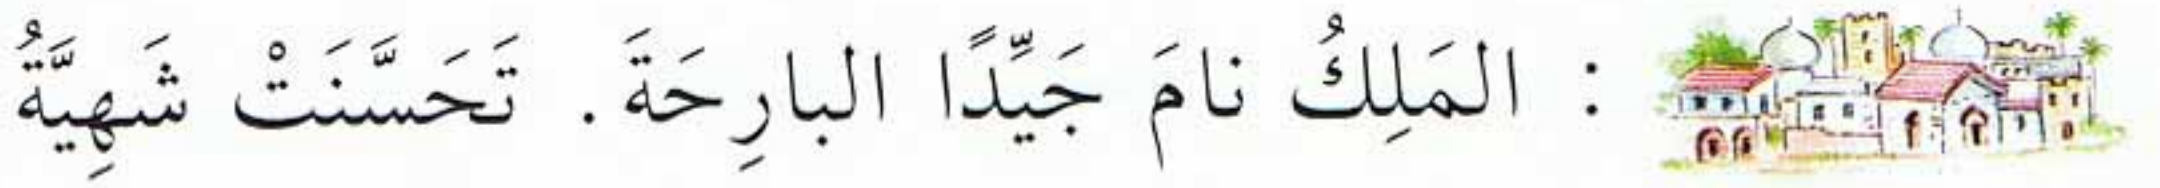 : المَلِكُ نامَ جَيِّدًا البارِحَةَ. تَحَسَّنَتْ شَهِيَّةُ